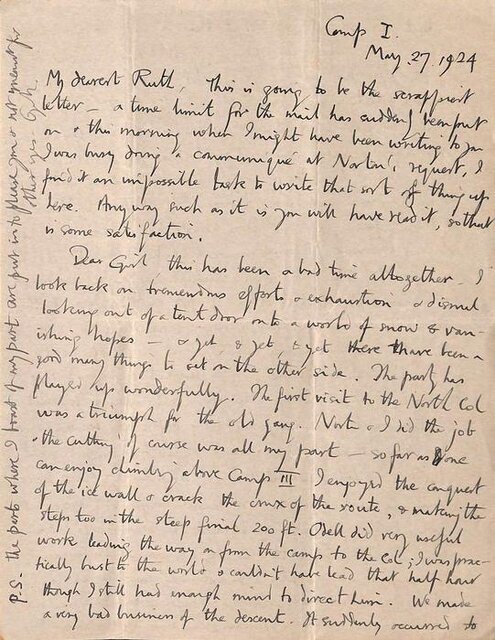 Camp I.
May. 27, 1924
My dearest Ruth, This is going to be the scrappiest
letter – a time limit for the mail has suddenly been put
on & this morning when I might have been writing to you
I was busy doing a communiqué at Norton's request, I
find it an impossible task to write that sort of thing up
here. Anyway such as it is you will have read it, so that
is some satisfaction.
Dear Girl, this has been a bad time altogether. I
look back on tremendous efforts & exhaustion & dismal
looking out of a tent door onto a world of snow & van-
ishing hopes – & yet, & yet, & yet there have been a
good many things to set on the other side. The party has
played up wonderfully. The first visit to the North Col
was a triumph for the old gang. Norton & I did the job
& the cutting of course was all my part – so far as one
can enjoy climbing above Camp III I enjoyed the conquest
of the ice wall & crack the crux of the route, & making the
steps too in the steep final 200 ft. Odell did very useful
work leading the way on from the camp to the Col; I was prac-
tically bust to the world & couldn't have lead that half hour
though I still had enough mind to direct him. We made
a very bad business of the descent. It suddenly occurred to
P.S. The parts where I boast of my part are put in to please you & not meant for
other eyes. G.M.